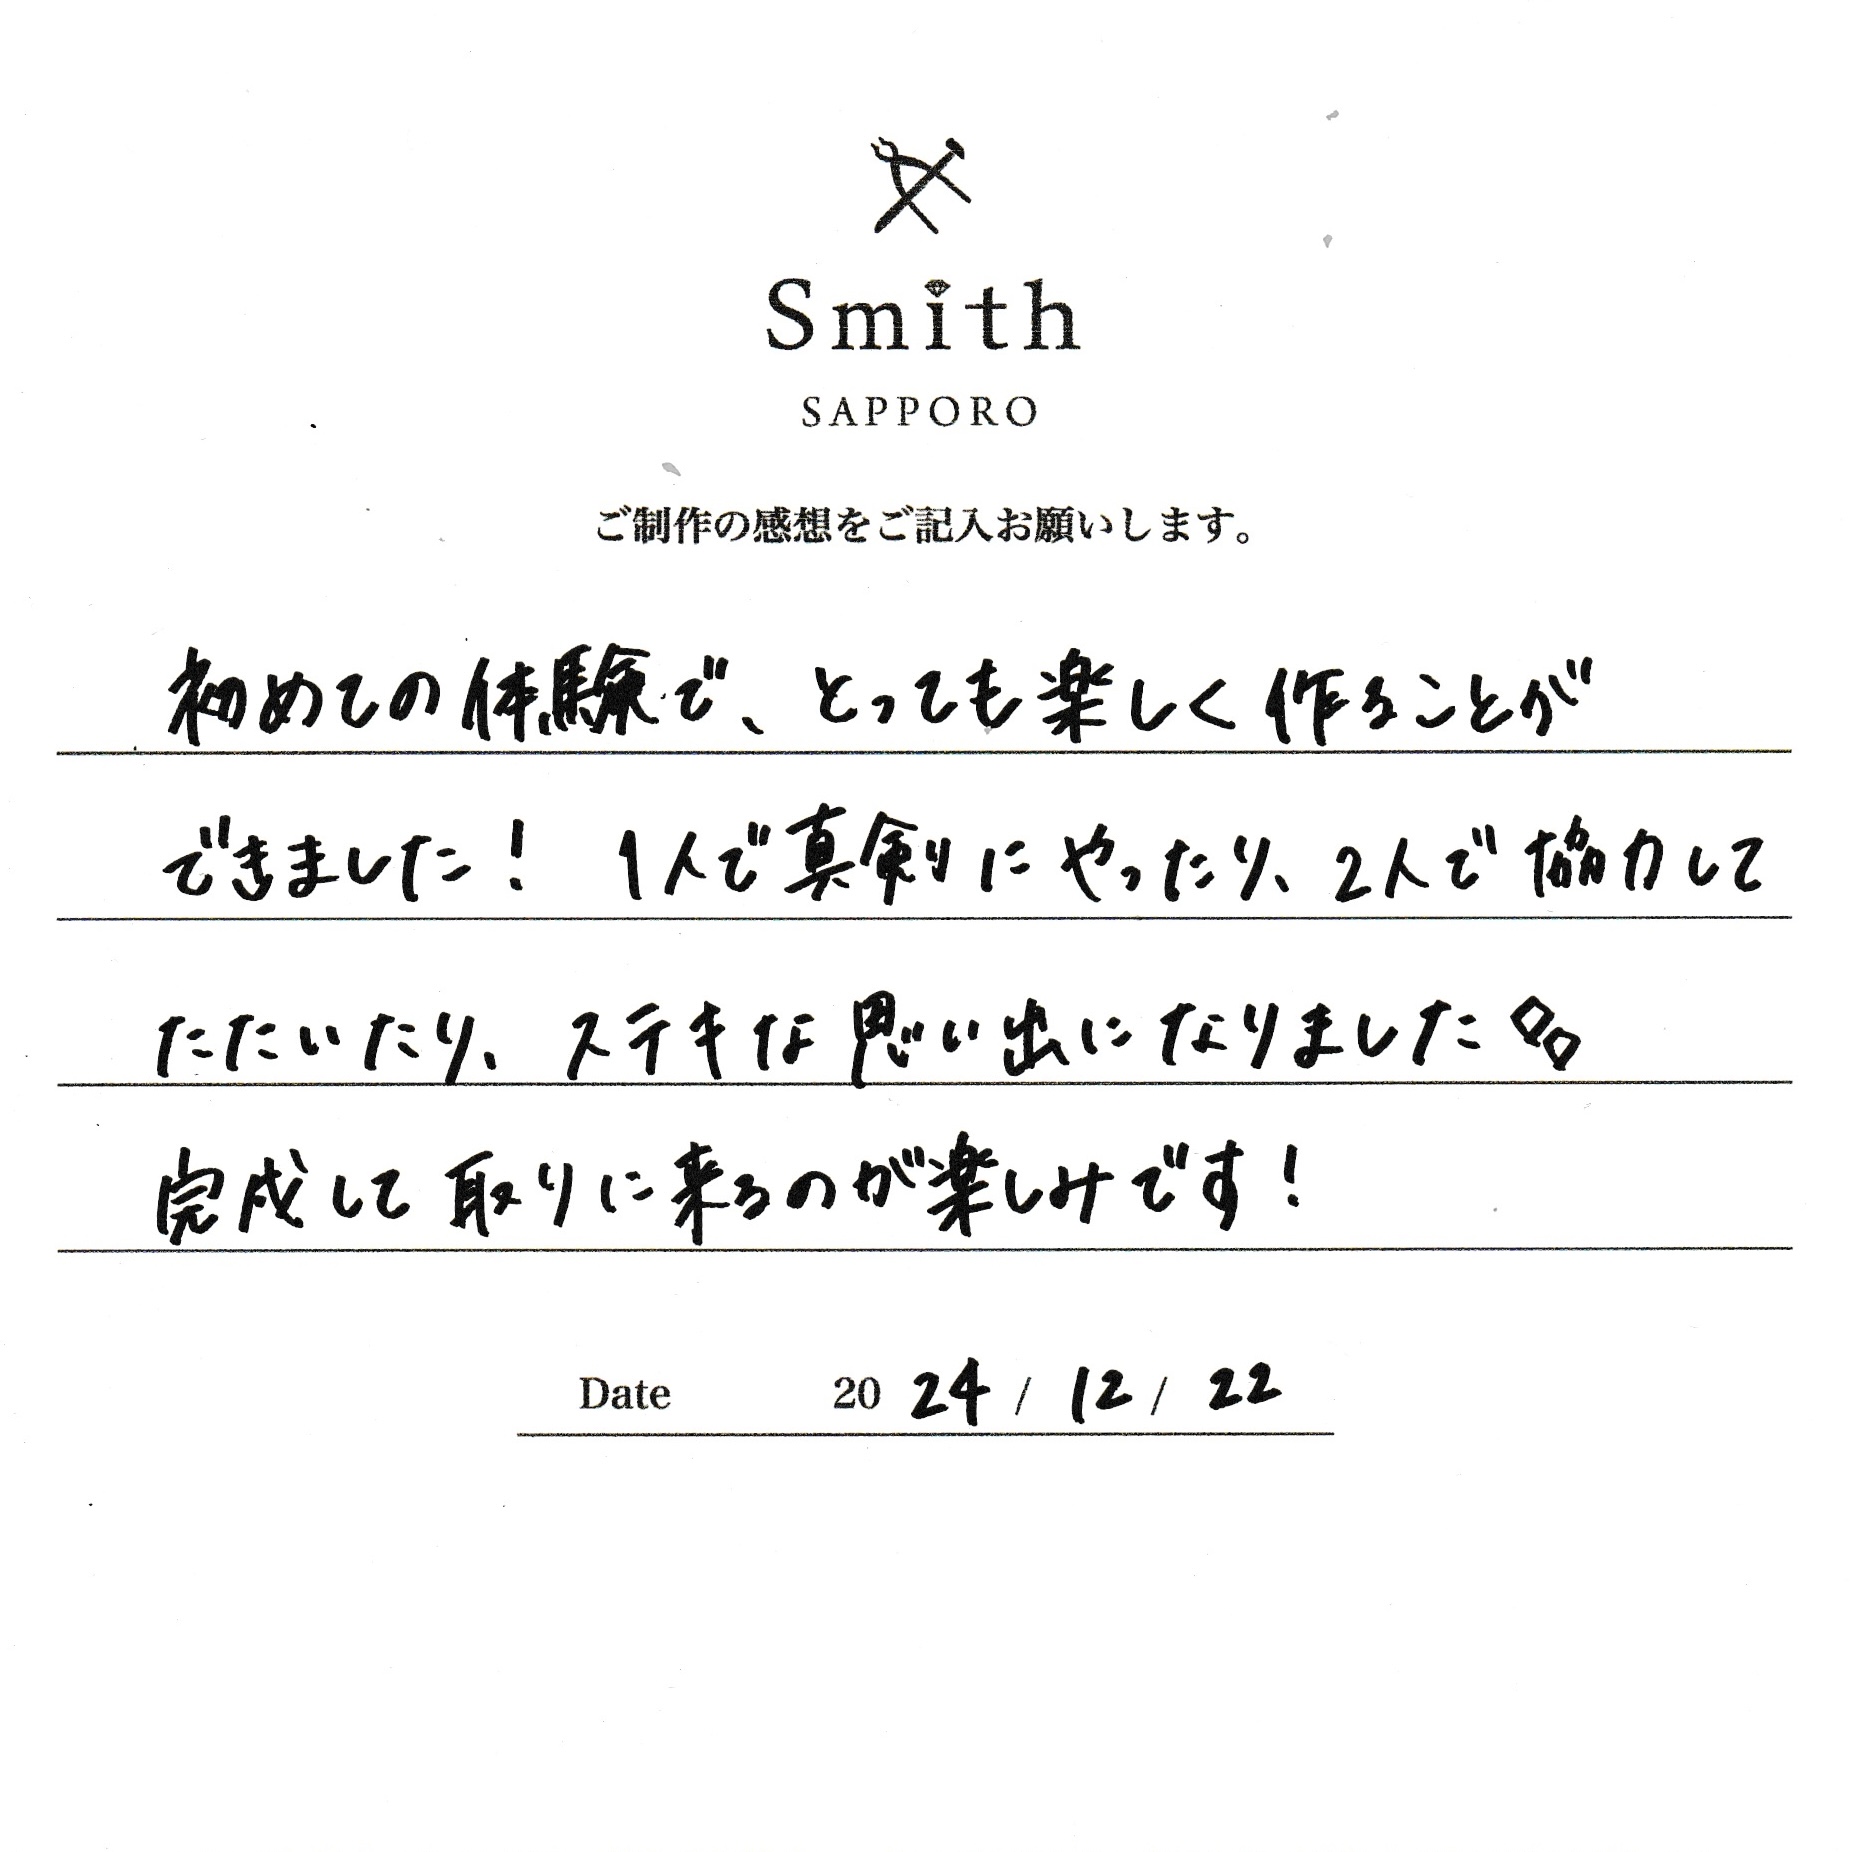 Smith
SAPPORO
ご制作の感想をご記入お願いします。
初めての体験で、とっても楽しく作ることが
できました！ 1人で真剣にやったり、2人で協力して
たたいたり、ステキな思い出になりました
完成して取りに来るのが楽しみです！
Date 2024/12/22